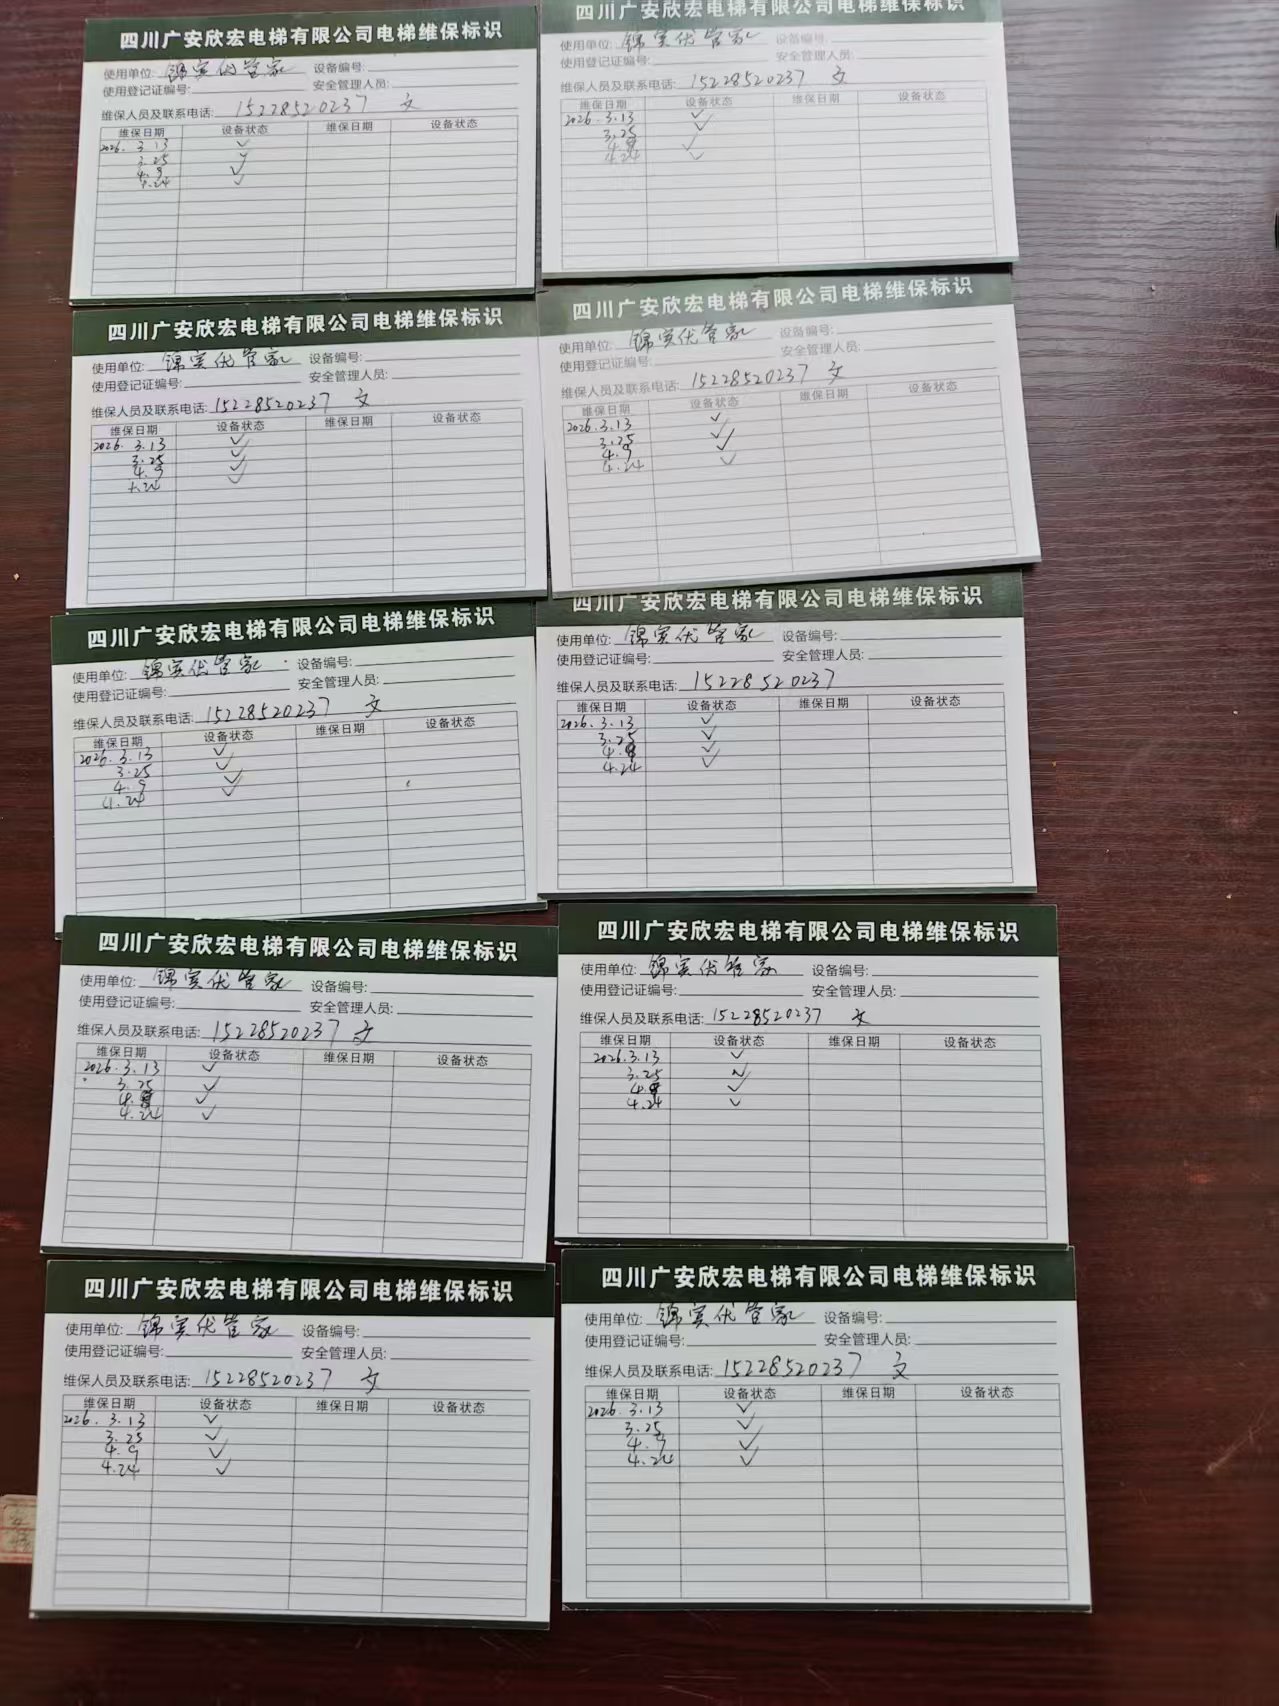 四川广安欣宏电梯有限公司电梯维保标识
使用单位: 锦实优管家 设备编号:
使用登记证编号: 安全管理人员:
维保人员及联系电话: 15228520237 文
维保日期 设备状态 维保日期 设备状态
2026. 3.13 ✓
3.25 ✓
4.9 ✓
4.24 ✓
四川广安欣宏电梯有限公司电梯维保标识
使用单位: 锦实优管家 设备编号:
使用登记证编号: 安全管理人员:
维保人员及联系电话: 15228520237 文
维保日期 设备状态 维保日期 设备状态
2026.3.13 ✓
3.25 ✓
4.9 ✓
4.24 ✓
四川广安欣宏电梯有限公司电梯维保标识
使用单位: 锦实优管家 设备编号:
使用登记证编号: 安全管理人员:
维保人员及联系电话: 15228520237 文
维保日期 设备状态 维保日期 设备状态
2026. 3.13 ✓
3.25 ✓
4.9 ✓
4.24 ✓
四川广安欣宏电梯有限公司电梯维保标识
使用单位: 锦实优管家 设备编号:
使用登记证编号: 安全管理人员:
维保人员及联系电话: 15228520237 文
维保日期 设备状态 维保日期 设备状态
2026.3.13 ✓
3.25 ✓
4.9 ✓
4.24 ✓
四川广安欣宏电梯有限公司电梯维保标识
使用单位: 锦实优管家 设备编号:
使用登记证编号: 安全管理人员:
维保人员及联系电话: 15228520237 文
维保日期 设备状态 维保日期 设备状态
2026.3.13 ✓
3.25 ✓
4.9 ✓
4.24 ✓
四川广安欣宏电梯有限公司电梯维保标识
使用单位: 锦实优管家 设备编号:
使用登记证编号: 安全管理人员:
维保人员及联系电话: 15228520237
维保日期 设备状态 维保日期 设备状态
2026.3.13 ✓
3.25 ✓
4.9 ✓
4.24 ✓
四川广安欣宏电梯有限公司电梯维保标识
使用单位: 锦实优管家 设备编号:
使用登记证编号: 安全管理人员:
维保人员及联系电话: 15228520237 文
维保日期 设备状态 维保日期 设备状态
2026.3.13 ✓
3.25 ✓
4.9 ✓
4.24 ✓
四川广安欣宏电梯有限公司电梯维保标识
使用单位: 锦实优管家 设备编号:
使用登记证编号: 安全管理人员:
维保人员及联系电话: 15228520237 文
维保日期 设备状态 维保日期 设备状态
2026.3.13 ✓
3.25 ✓
4.9 ✓
4.24 ✓
四川广安欣宏电梯有限公司电梯维保标识
使用单位: 锦实优管家 设备编号:
使用登记证编号: 安全管理人员:
维保人员及联系电话: 15228520237 文
维保日期 设备状态 维保日期 设备状态
2026. 3.13 ✓
3.25 ✓
4.9 ✓
4.24 ✓
四川广安欣宏电梯有限公司电梯维保标识
使用单位: 锦实优管家 设备编号:
使用登记证编号: 安全管理人员:
维保人员及联系电话: 15228520237 文
维保日期 设备状态 维保日期 设备状态
2026. 3.13 ✓
3.25 ✓
4.9 ✓
4.24 ✓